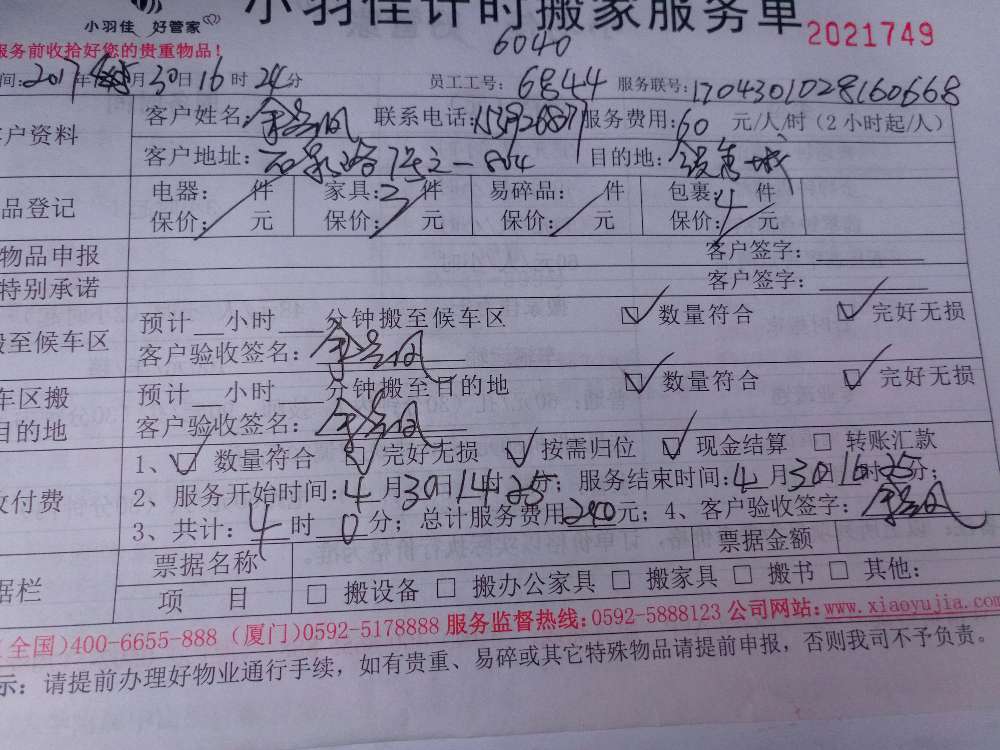 小羽佳 好管家
小羽佳计时搬家服务单
2021749
服务前收拾好您的贵重物品！
6040
间：2017年 月30日16时24分 员工工号：6844 服务联号：1704301028160668
户资料 客户姓名： 联系电话： 服务费用：60 元/人/时（2小时起/人）
客户地址： 目的地：
品登记 电器： 件 家具：3件 易碎品： 件 包裹：4件
保价： 元 保价： 元 保价： 元 保价： 元
物品申报 客户签字：
特别承诺 客户签字：
搬至候车区 预计__小时___分钟搬至候车区 ☑ 数量符合 ☑ 完好无损
客户验收签名：
车区搬目的地 预计__小时___分钟搬至目的地 ☑ 数量符合 ☑ 完好无损
客户验收签名：
收付费 1、☑ 数量符合 ☑ 完好无损 ☑ 按需归位 ☑ 现金结算 □ 转账汇款
2、服务开始时间：4月30日14时25分；服务结束时间：4月30日16时25分；
3、共计：4时0分；总计服务费用240元；4、客户验收签字：
据栏 票据名称 票据金额
项 目 □ 搬设备 □ 搬办公家具 □ 搬家具 □ 搬书 □ 其他：
（全国）400-6655-888（厦门）0592-5178888 服务监督热线：0592-5888123 公司网站：www.xiaoyujia.com
示：请提前办理好物业通行手续，如有贵重、易碎或其它特殊物品请提前申报，否则我司不予负责。